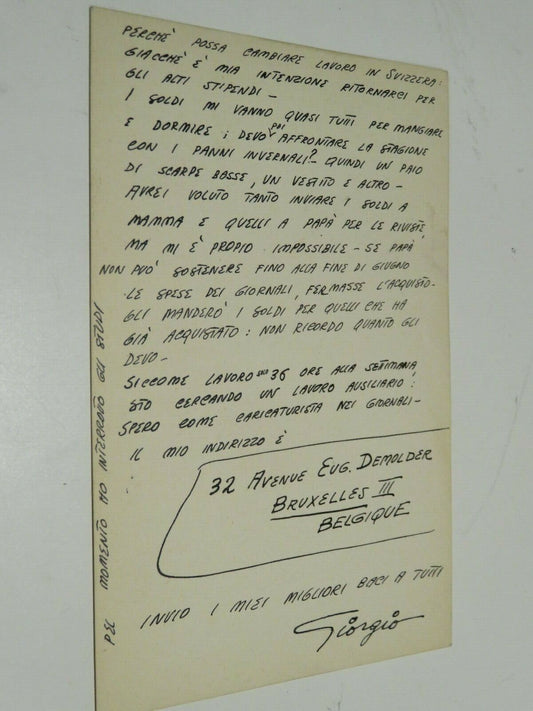 PERCHÈ POSSA CAMBIARE LAVORO IN SVIZZERA:
GIACCHÈ È MIA INTENZIONE RITORNARCI PER
GLI ALTI STIPENDI -
I SOLDI MI VANNO QUASI TUTTI PER MANGIARE
E DORMIRE; DEVO POI AFFRONTARE LA STAGIONE
CON I PANNI INVERNALI? - QUINDI UN PAIO
DI SCARPE BASSE, UN VESTITO E ALTRO -
AVREI VOLUTO TANTO INVIARE I SOLDI A
MAMMA E QUELLI A PAPÀ PER LE RIVISTE,
MA MI È PROPIO IMPOSSIBILE - SE PAPÀ
NON PUÒ SOSTENERE FINO ALLA FINE DI GIUGNO
LE SPESE DEI GIORNALI, FERMASSE L'ACQUISTO -
GLI MANDERÒ I SOLDI PER QUELLI CHE HA
GIÀ ACQUISTATO: NON RICORDO QUANTO GLI
DEVO -
SICCOME LAVORO SOLO 36 ORE ALLA SETTIMANA,
STO CERCANDO UN LAVORO AUSILIARIO:
SPERO COME CARICATURISTA NEI GIORNALI -
IL MIO INDIRIZZO È
32 AVENUE EUG. DEMOLDER
BRUXELLES III
BELGIQUE
INVIO I MIEI MIGLIORI BACI A TUTTI
Giorgio
PEL MOMENTO HO INTERROTTO GLI STUDI